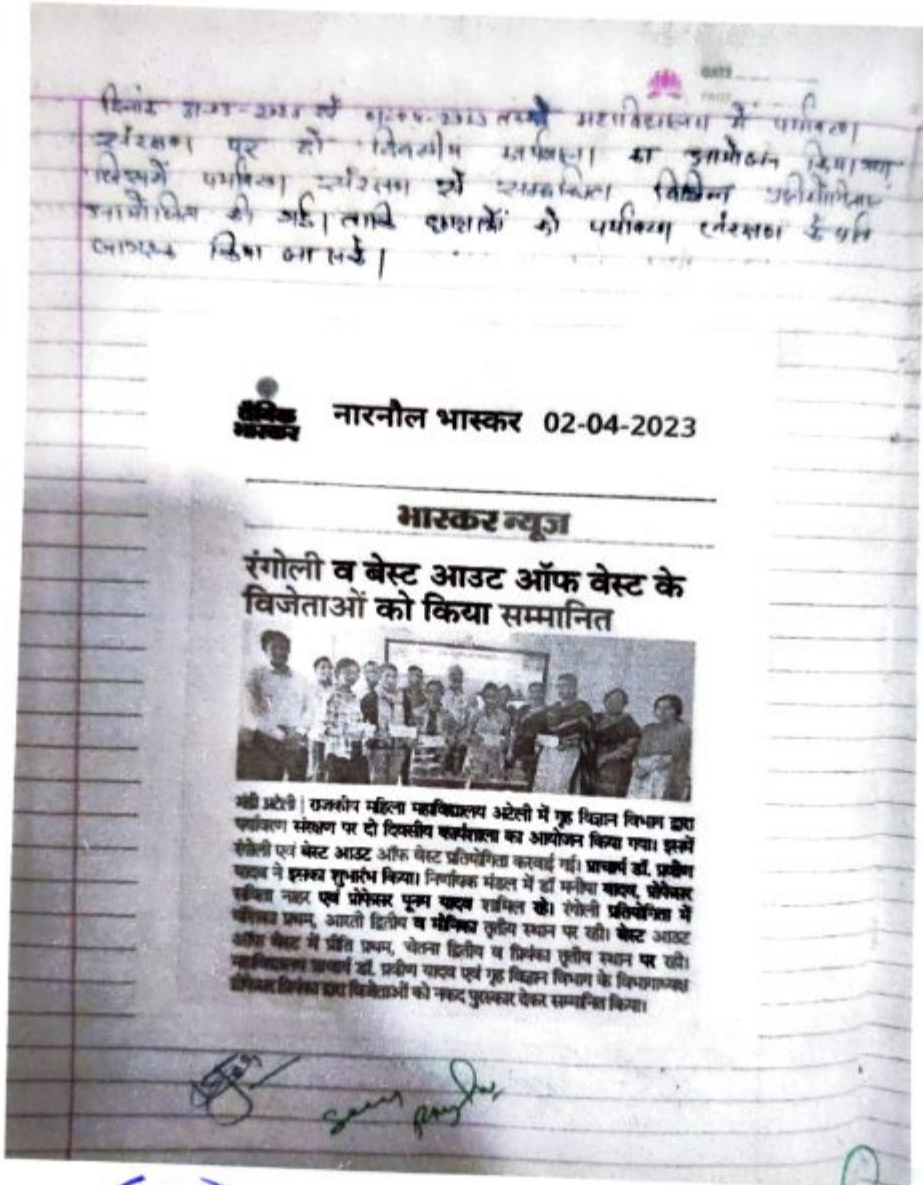 DATE
PAGE
दिनांक 31-03-2023 से 01-04-2023 तक महाविद्यालय में पर्यावरण
संरक्षण पर दो दिवसीय कार्यशाला का आयोजन किया गया
जिसमें पर्यावरण संरक्षण से सम्बन्धित विभिन्न प्रतियोगिताएं
आयोजित की गई। ताकि छात्राओं को पर्यावरण संरक्षण के प्रति
जागरूक किया जा सके।
दैनिक
भास्कर
नारनौल भास्कर 02-04-2023
भास्कर न्यूज
रंगोली व बेस्ट आउट ऑफ वेस्ट के
विजेताओं को किया सम्मानित
मंडी अटेली | राजकीय महिला महाविद्यालय अटेली में गृह विज्ञान विभाग द्वारा
पर्यावरण संरक्षण पर दो दिवसीय कार्यशाला का आयोजन किया गया। इसमें
रंगोली एवं बेस्ट आउट ऑफ वेस्ट प्रतियोगिता करवाई गई। प्राचार्य डॉ. प्रवीण
यादव ने इसका शुभारंभ किया। निर्णायक मंडल में डॉ मनीषा यादव, प्रोफेसर
सविता नाहर एवं प्रोफेसर पूनम यादव शामिल रहे। रंगोली प्रतियोगिता में
प्रथम, आरती द्वितीय व मोनिका तृतीय स्थान पर रही। बेस्ट आउट
ऑफ वेस्ट में प्रीति प्रथम, चेतना द्वितीय व प्रियंका तृतीय स्थान पर रही।
महाविद्यालय प्राचार्य डॉ. प्रवीण यादव एवं गृह विज्ञान विभाग के विभागाध्यक्ष
प्रोफेसर प्रियंका द्वारा विजेताओं को नकद पुरस्कार देकर सम्मानित किया।